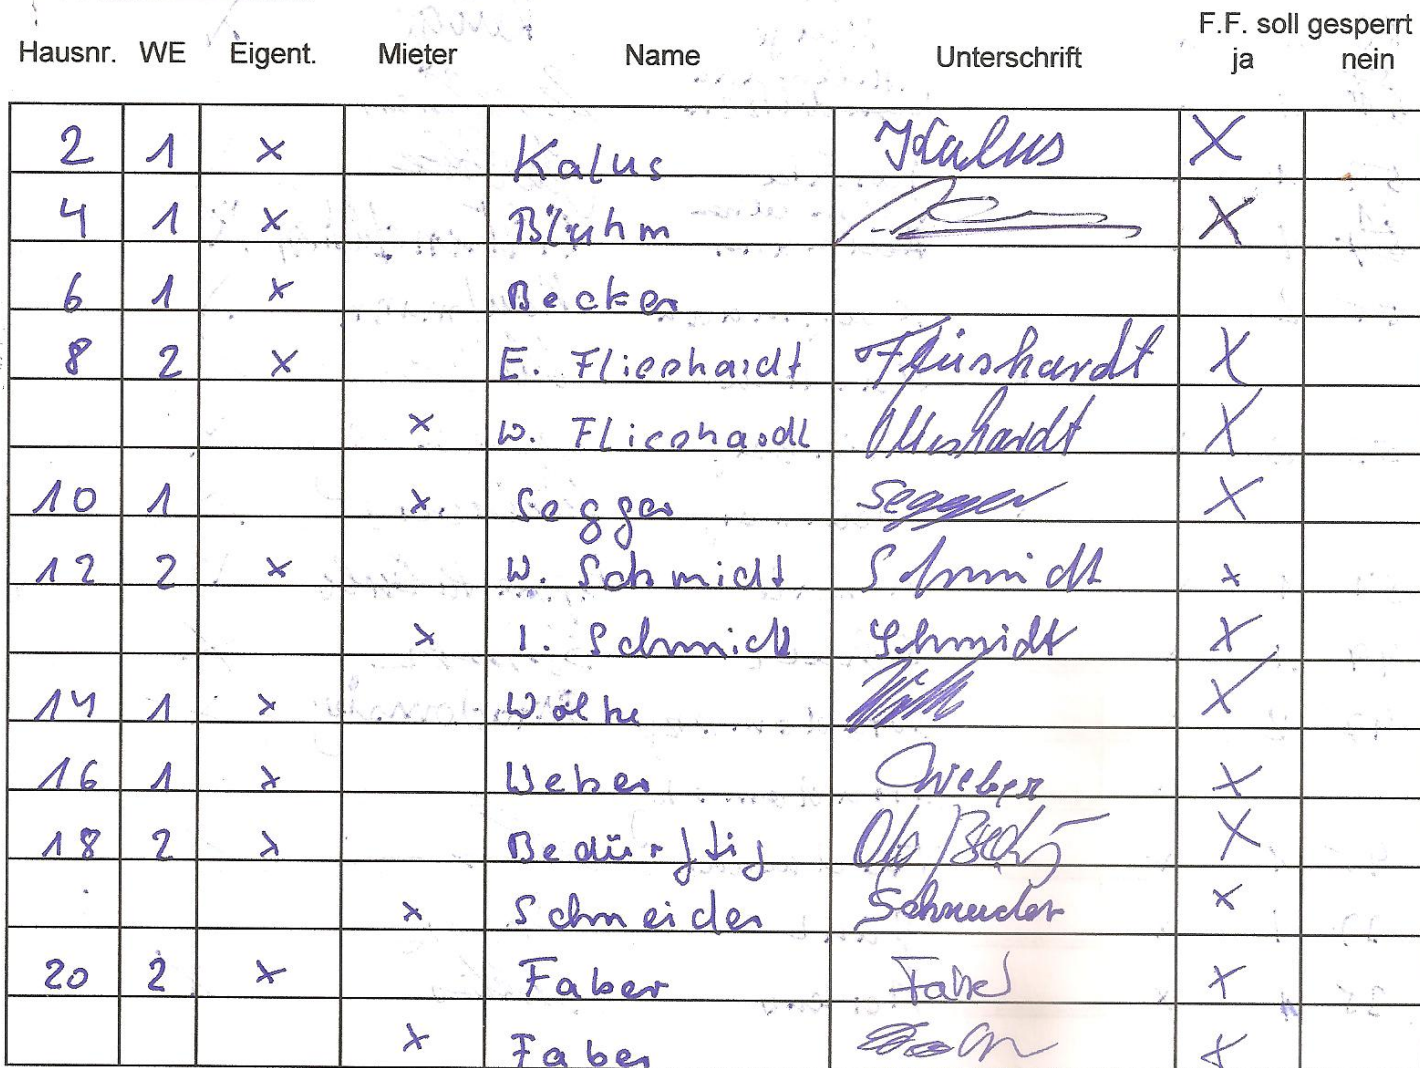 F.F. soll gesperrt
Hausnr. WE Eigent. Mieter Name Unterschrift ja nein
2 1 x Kalus Kalus X
4 1 x Blühm X
6 1 x Becker
8 2 x E. Flieshardt Flieshardt X
x W. Flieshardt Flieshardt X
10 1 x. Segger Segger X
12 2 x W. Schmidt Schmidt x
x I. Schmidt Schmidt X
14 1 x Wölke X
16 1 x Weber Weber X
18 2 x Bedürftig X
x Schneider Schneider x
20 2 x Faber Faber x
x Faber x